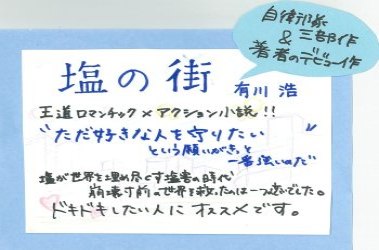 自衛隊
& 三部作
著者のデビュー作
塩の街
有川 浩
王道ロマンチック×アクション小説!!
"ただ好きな人を守りたい
という願いがきっと
一番強いのだ"
塩が世界を埋め尽くす塩害の時代
崩壊寸前の世界を救ったのは一つの恋でした。
ドキドキしたい人にオススメです。